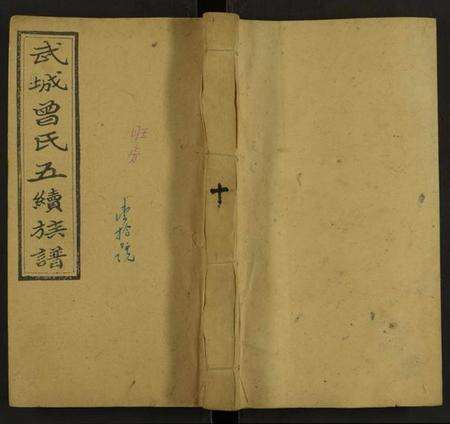 武城曾氏五續族譜
旺房
十